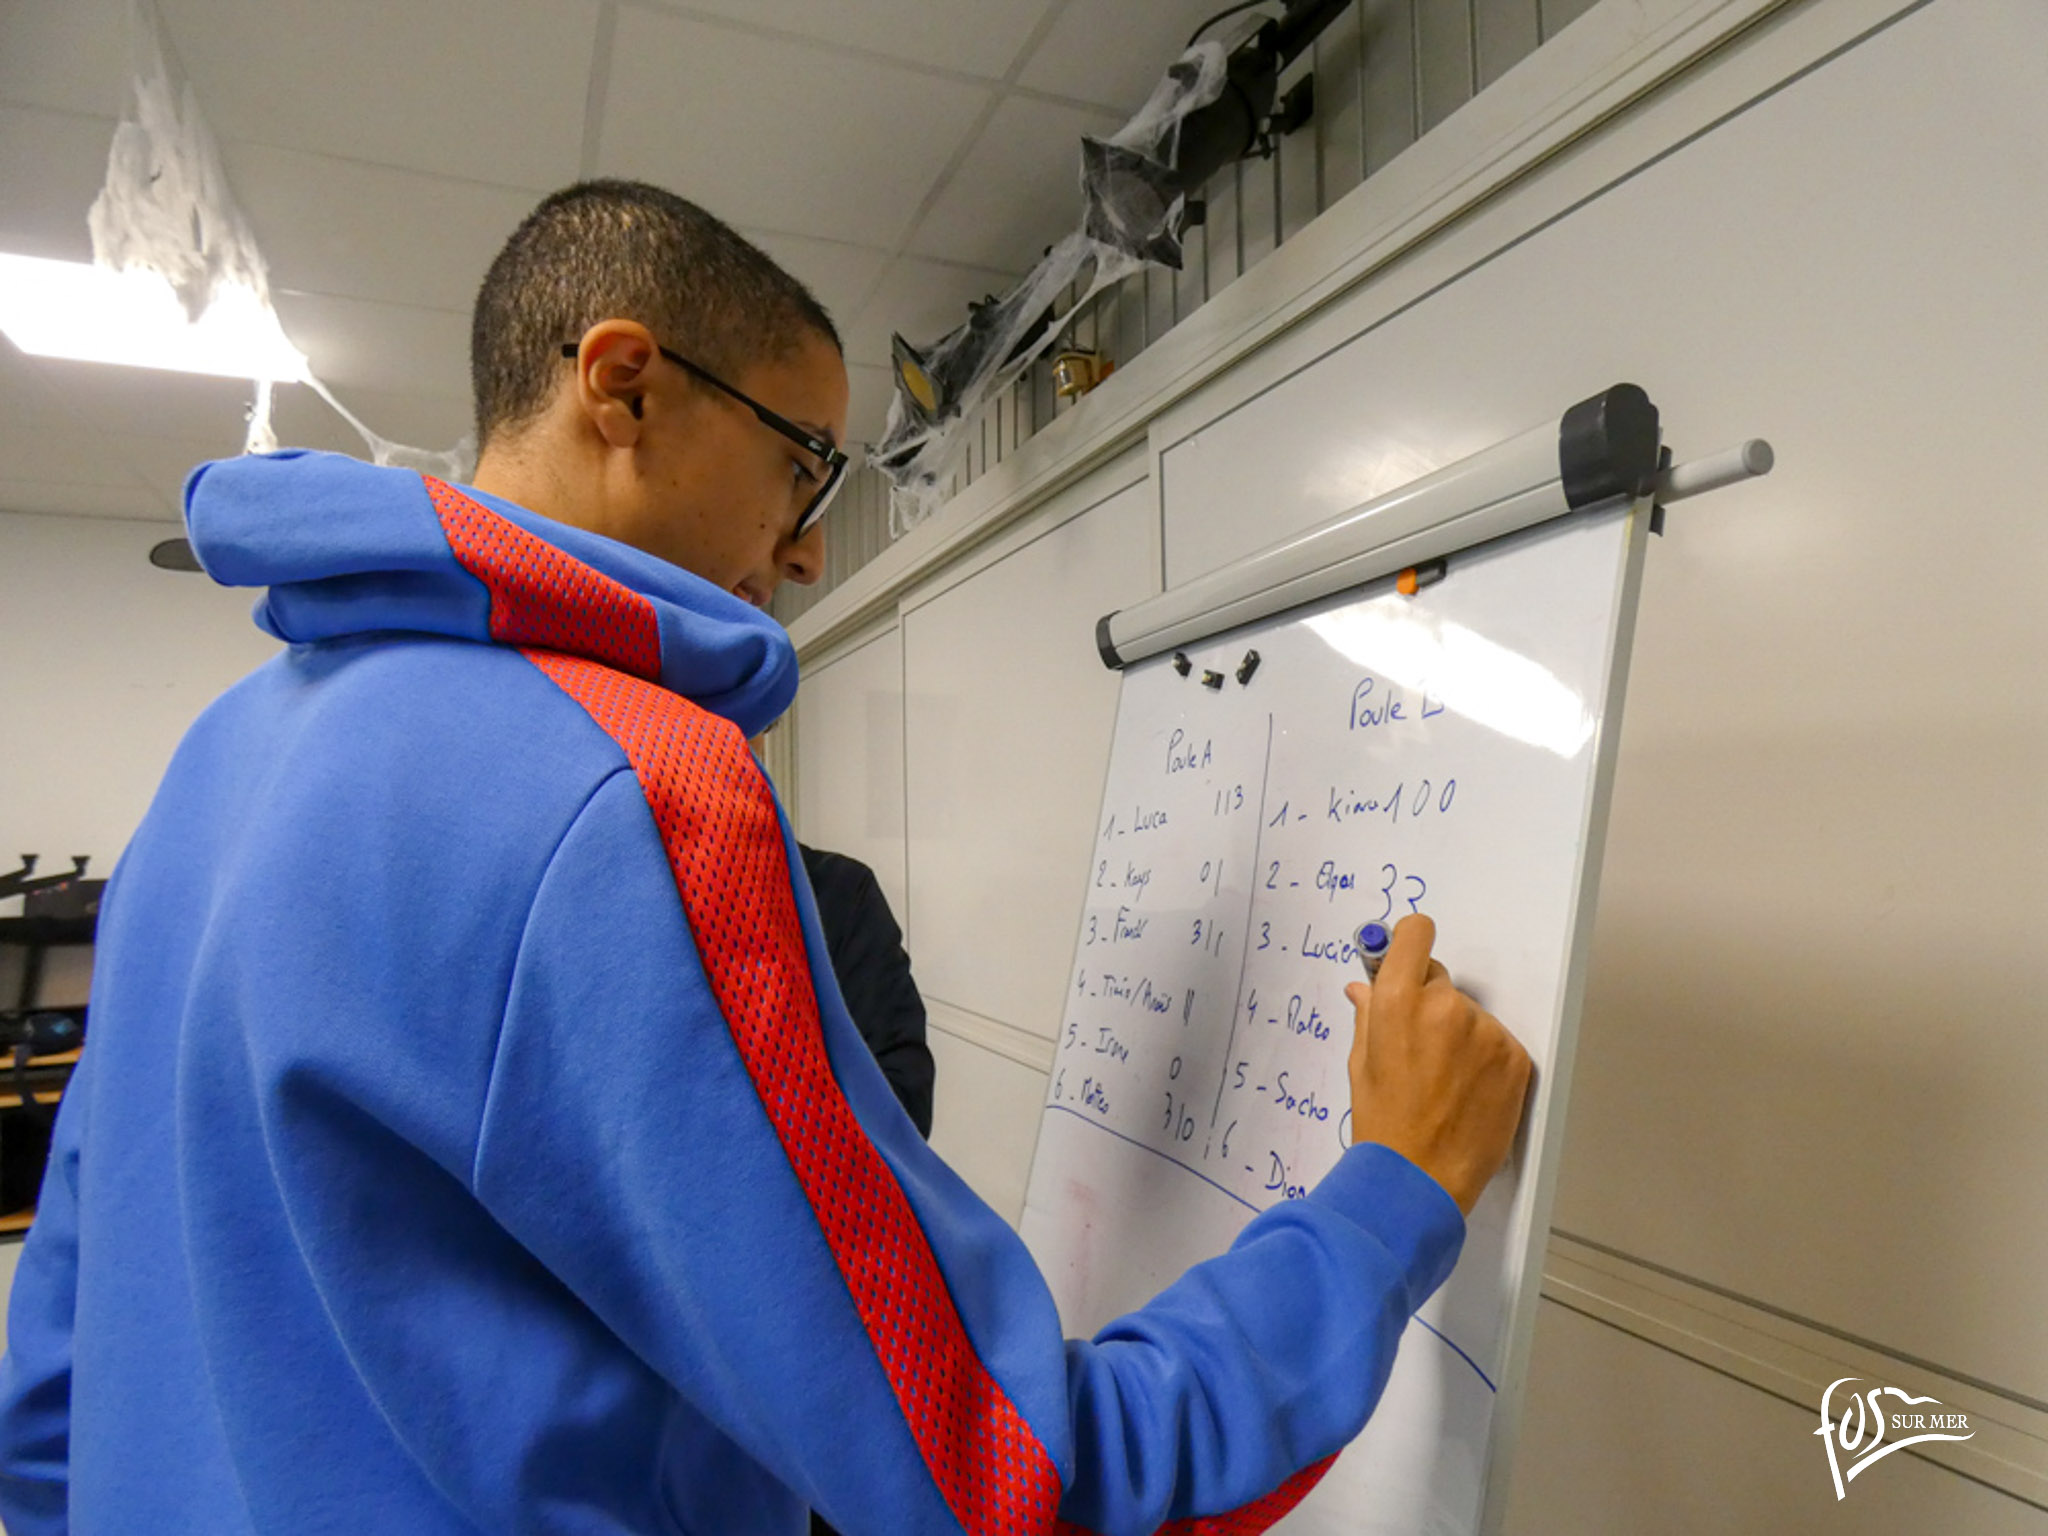 Poule A
1 - Luca 113
2 - Kays 01
3 -
31
4 - Tinis/Anaïs 11
5 -
0
6 - Matteo 310
Poule
1 - Kiara 1 0 0
2 -
33
3 - Lucien
4 - Mateo
5 - Sacha
6 - Dian
FOS SUR MER